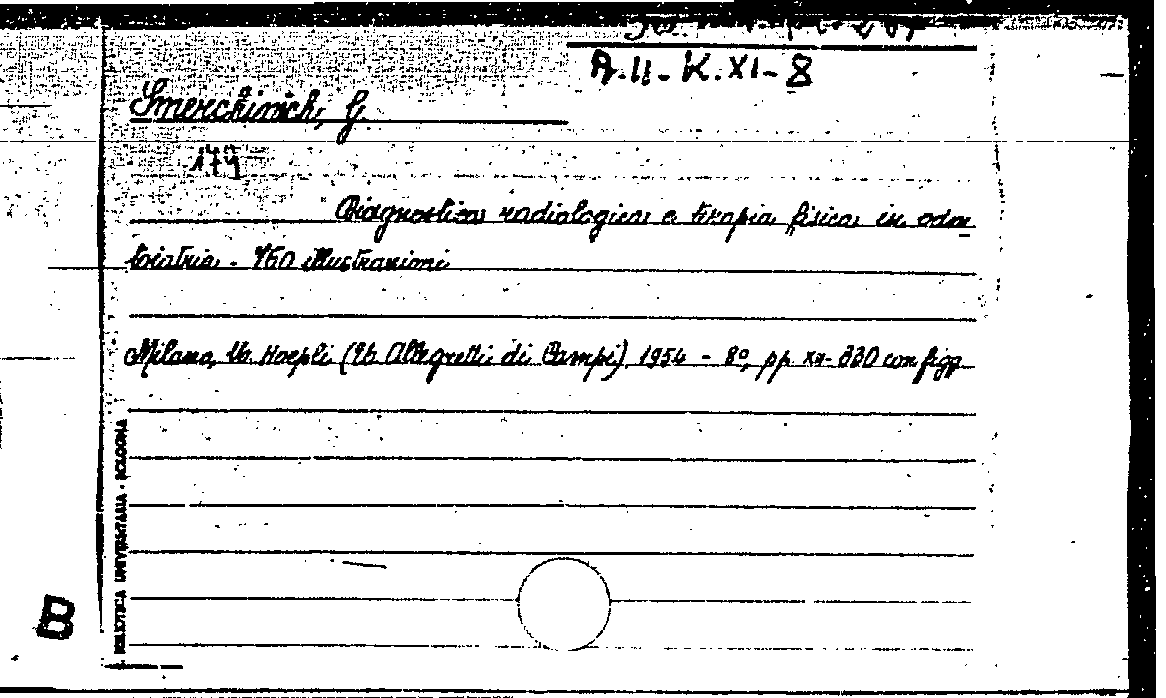 A.II - K.XI - 8
Smerchinich, G.
174
Diagnostica radiologica e terapia fisica in odon
toiatria. 760 illustrazioni
Milano, U. Hoepli (Tb. Allegretti di Campi) 1954 - 8º, pp. XII-330 con figg.
BIBLIOTECA UNIVERSITARIA - BOLOGNA
B